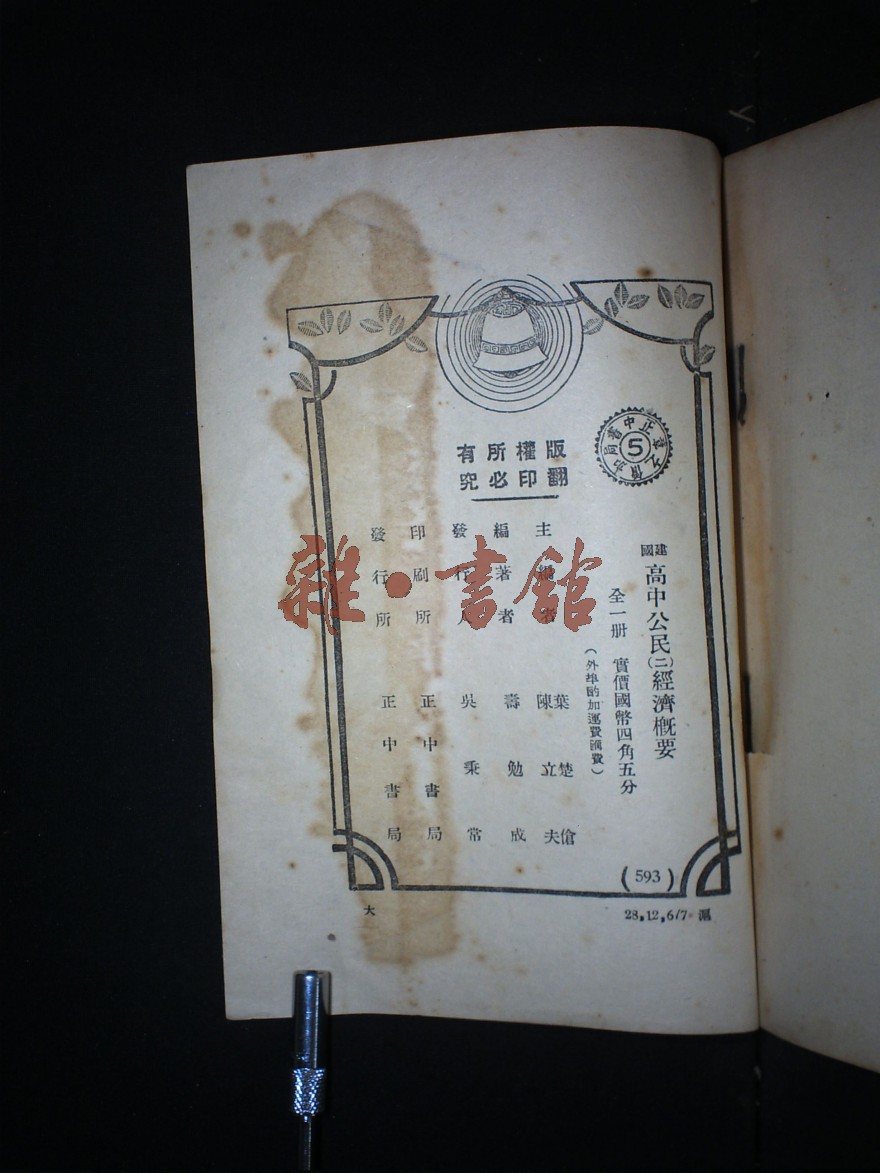 版權所有
翻印必究
建國
高中公民(二)經濟概要
全一册 實價國幣四角五分
(外埠酌加運費匯費)
主編者 葉楚傖
陳立夫
編著者 壽勉成
發行人 吳秉常
印刷所 正中書局
發行所 正中書局
(593)
28,12,6/7. 滬
大
5
雜·書館